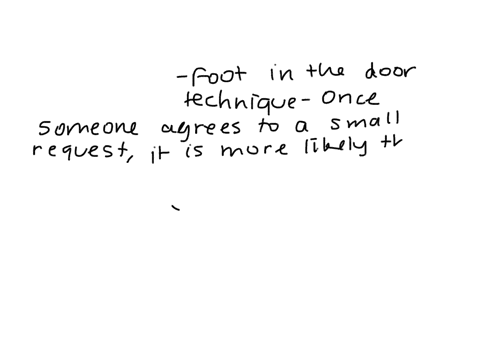 -Foot in the door
technique- Once
someone agrees to a small
request, it is more likely th